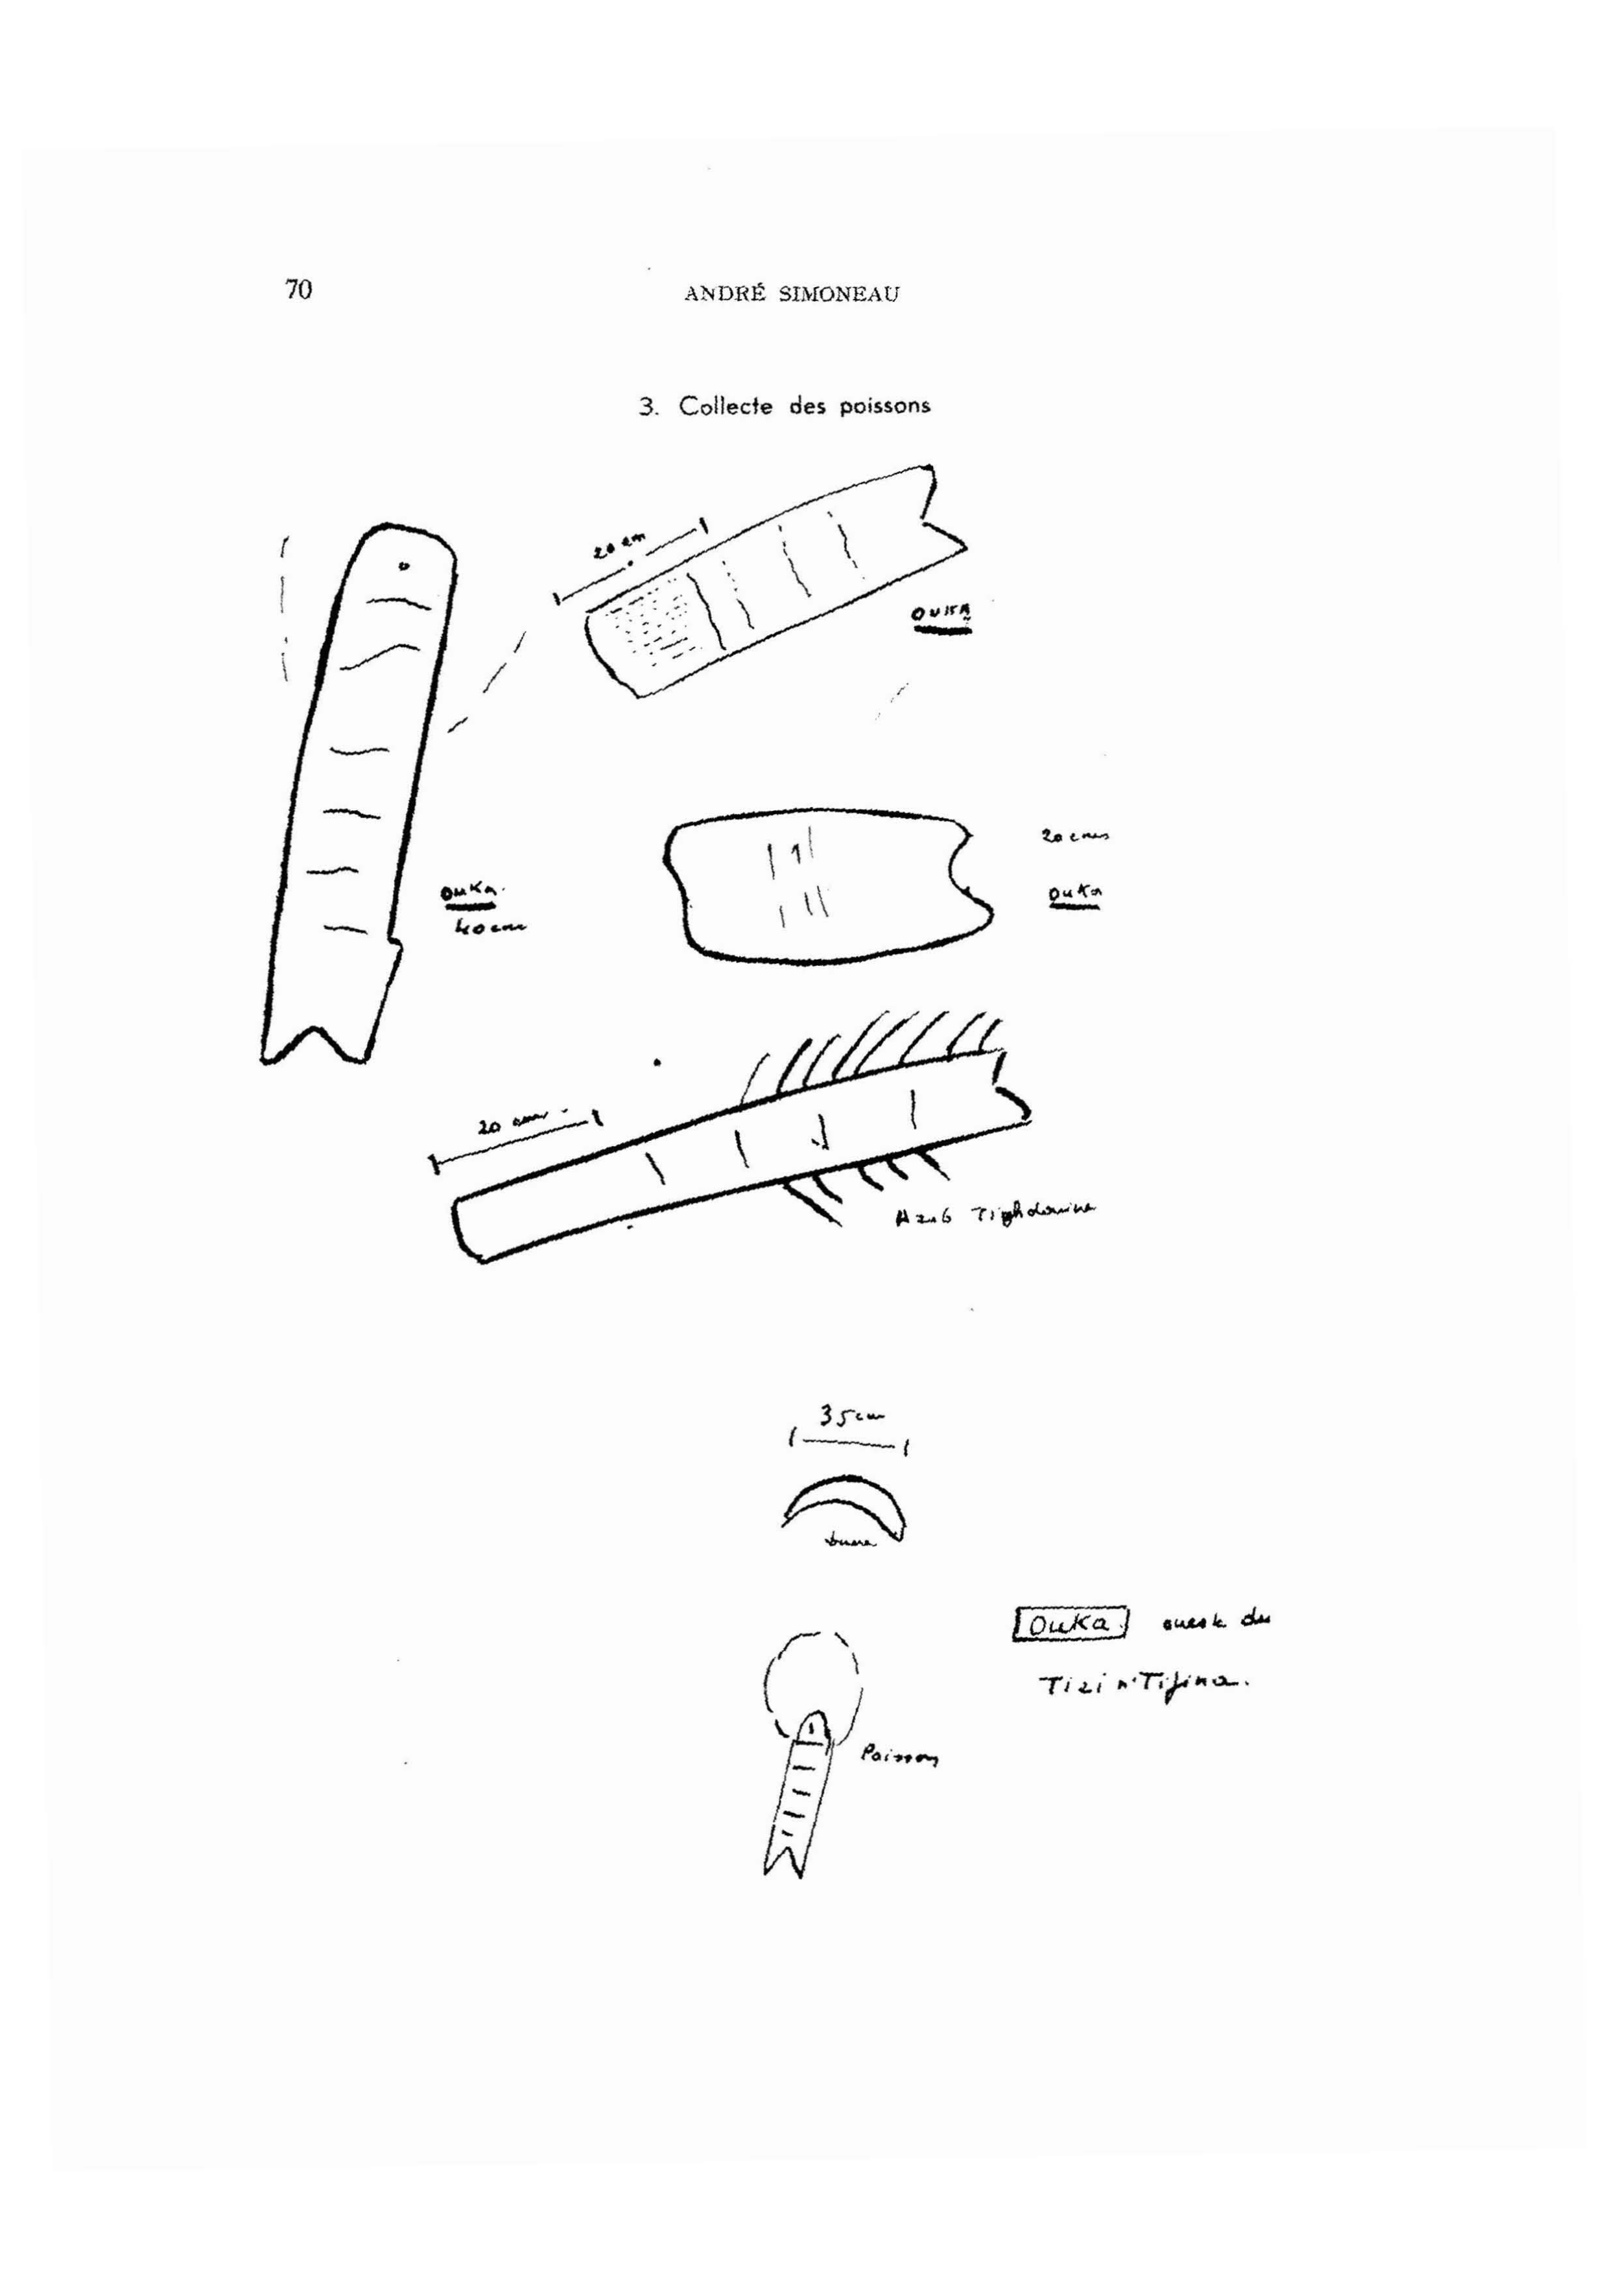 70
ANDRÉ SIMONEAU
3. Collecte des poissons
20 cm
OUKA
OUKA
40 cm
20 cms
OUKA
20 cms
Azib Tighdouine
35 cm
OUKA ouest du
Tizi n'Tifina.
Poisson